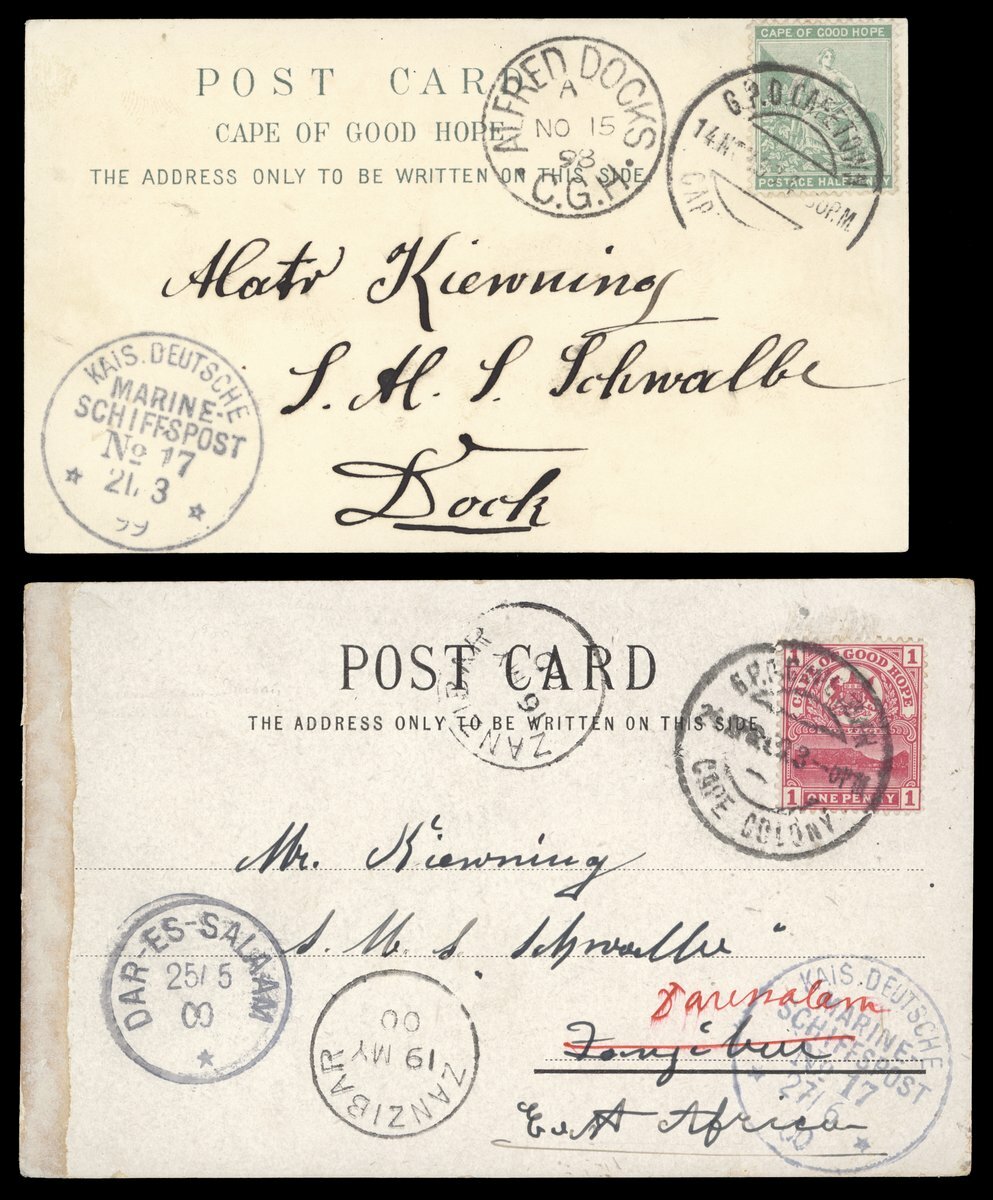 CAPE OF GOOD HOPE
POSTAGE HALFPENNY
POST CARD
CAPE OF GOOD HOPE
THE ADDRESS ONLY TO BE WRITTEN ON THIS SIDE
ALFRED DOCKS
A
NO 15
98
C.G.H.
G.P.O. CAPETOWN
14
PM.
Matr Kiewning
S. M. S. Schwalbe
Dock
KAIS. DEUTSCHE
MARINE-
SCHIFFSPOST
No 17
21/3
99
POST CARD
THE ADDRESS ONLY TO BE WRITTEN ON THIS SIDE
ZANZIBAR
1 1
CAPE OF GOOD HOPE
1 ONE PENNY 1
CAPE COLONY
Mr. Kiewning
S. M. S. "Schwalbe"
Daressalam
Zanzibar
East Africa
DAR-ES-SALAAM
25/5
00
ZANZIBAR
19 MY
00
KAIS. DEUTSCHE
MARINE-
SCHIFFSPOST
No 17
27/6
00